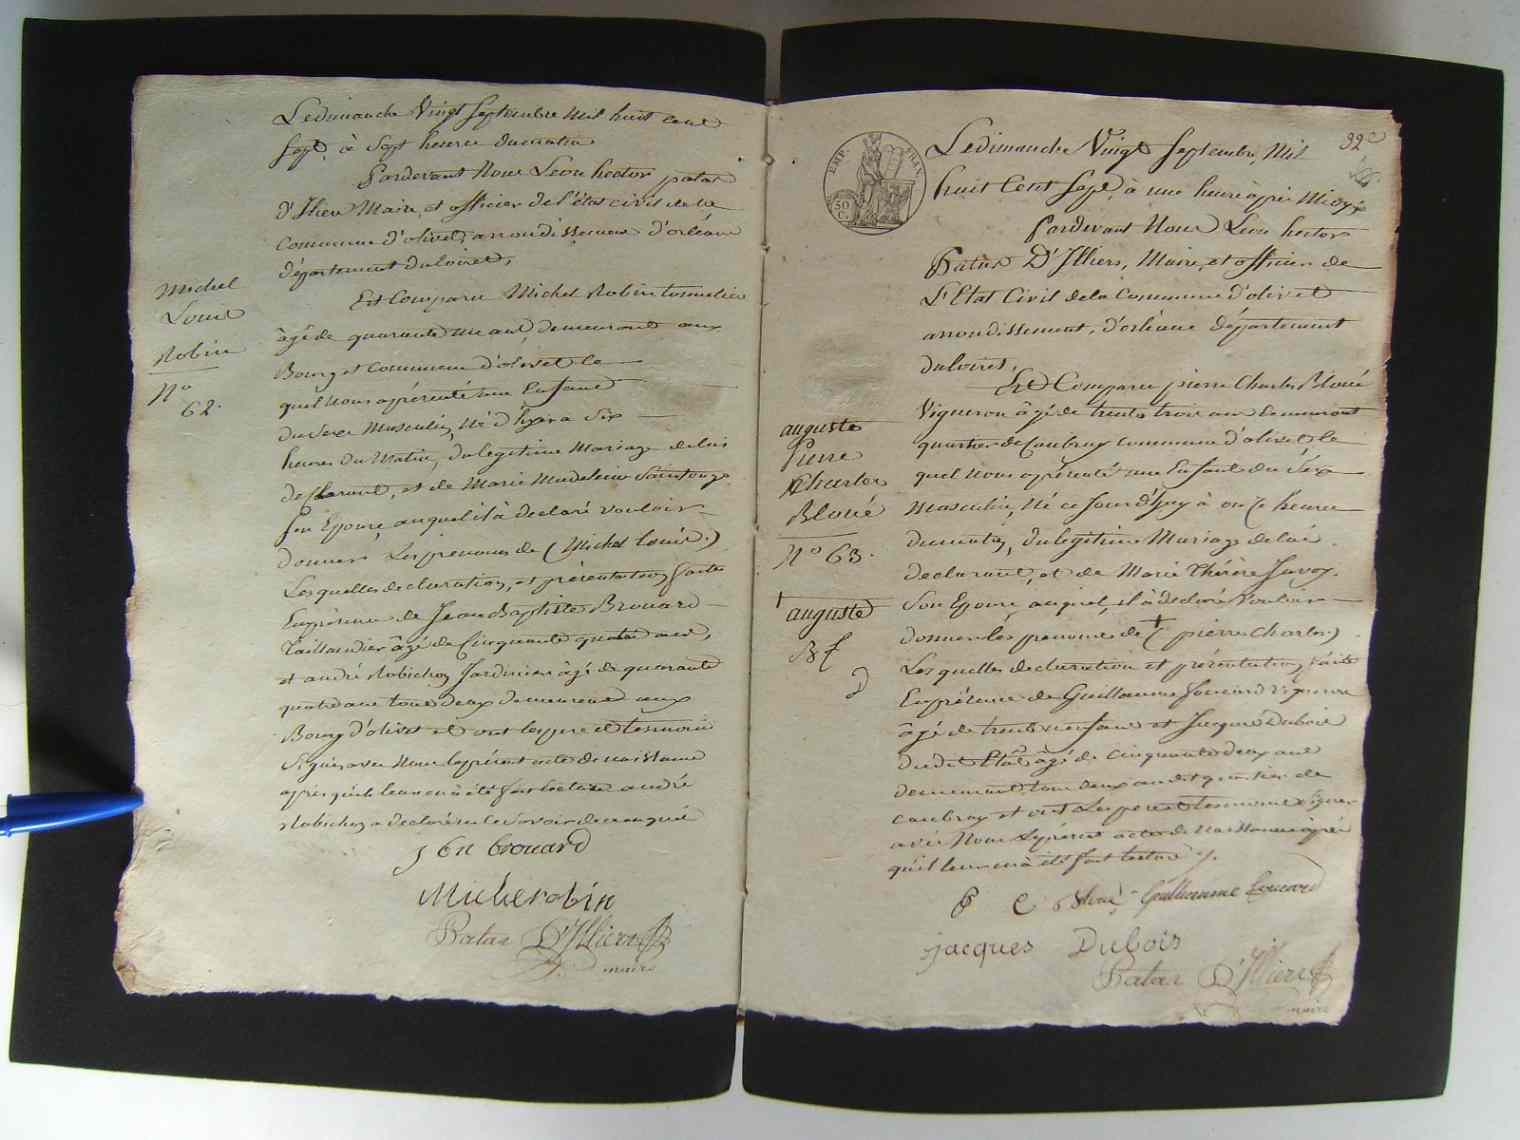 Le dimanche Vingt Septembre mil huit cent
Sept, à Sept heures du matin
Pardevant Nous Leon hector patas
d'Illiers Maire, et officier de l'état civil de la
Commune d'olivet, arrondissement d'orléans
département du loiret,
Est Comparu Michel Robin tonnelier
âgé de quarante un ans, demeurant aux
Bourg et Commune d'olivet le
quel nous a présenté un Enfant
du Sexe Masculin, Né d'hyer a Six
heures du Matin, du legitime Mariage de lui
declarant, et de Marie Madeleine Saintonge
Son Epouse, auquel il à declaré vouloir
donner Les prenoms de (Michel Louis.)
Les quelles declaration, et présentation faites
En présence de Jean Baptiste Brouard
Taillandier âgé de Cinquante quatre ans,
et andré Robichon Jardinier âgé de quarante
quatre ans tous deux demeurant aux
Bourg d'olivet et ont les pere et temoins
Signés avec Nous le présent acte de naissance
après qu'il leur en à été fait lecture andré
Robichon a declaré ne le Savoir de ce enquis
Michel
Louis
Robin
No
62.
J b n brouard
Michel robin
Patas D'Illiers
maire
32e
EMP. FRAN.
50
C.
Le dimanche Vingt Septembre Mil
huit Cent Sept, à une heure après Midy
Pardevant Nous Léon hector
Patas D'Illiers, Maire, et officier de
L'Etat Civil de la Commune d'olivet
arrondissement, d'orléans département
du loiret,
Est Comparu pierre Charles Bloué
Vigneron âgé de trente trois ans demeurant
quartier de Caubray commune d'olivet le
quel Nous a présenté un Enfant du Sexe
Masculin, Né ce Jourd'huy à onze heures
du matin, du legitime Mariage de lui
declarant, et de Marie Thérèse Javoy
Son Epouse, auquel, il à declaré Vouloir
donner les prenoms de † (pierre Charles)
Les quelles declaration et présentation, faite
En présence de Guillaume Vigneron
âgé de trente neuf ans et Jacques Dubois
du dit Etat âgé de cinquante deux ans
demeurant tous deux au dit quartier de
caubray et ont Les pere et temoins Signer
avec Nous Le présent acte de Naissance après
qu'il leur en à été fait lecture
auguste
Pierre
Charles
Bloué
No 63.
† auguste
P C Bloué Guillaume
jacques Dubois
Patas D'Illiers
maire